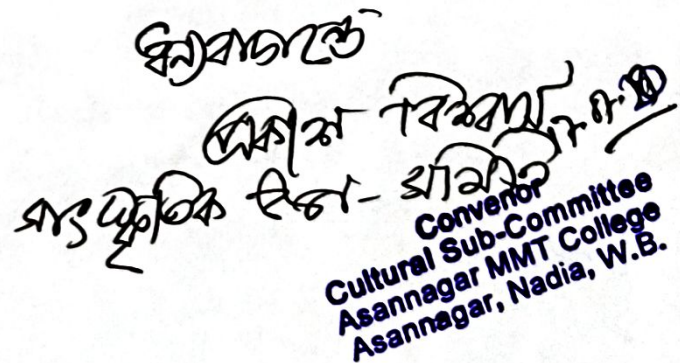 ধন্যবাদান্তে
প্রকাশ বিশ্বাস
সাংস্কৃতিক উপ-সমিতি
Convenor
Cultural Sub-Committee
Asannagar MMT College
Asannagar, Nadia, W.B.